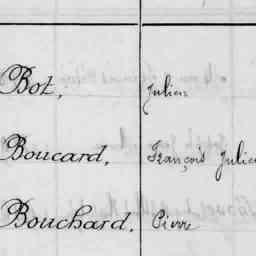 Bot, Julien
Boucard, François Julien
Bouchard, Pierre